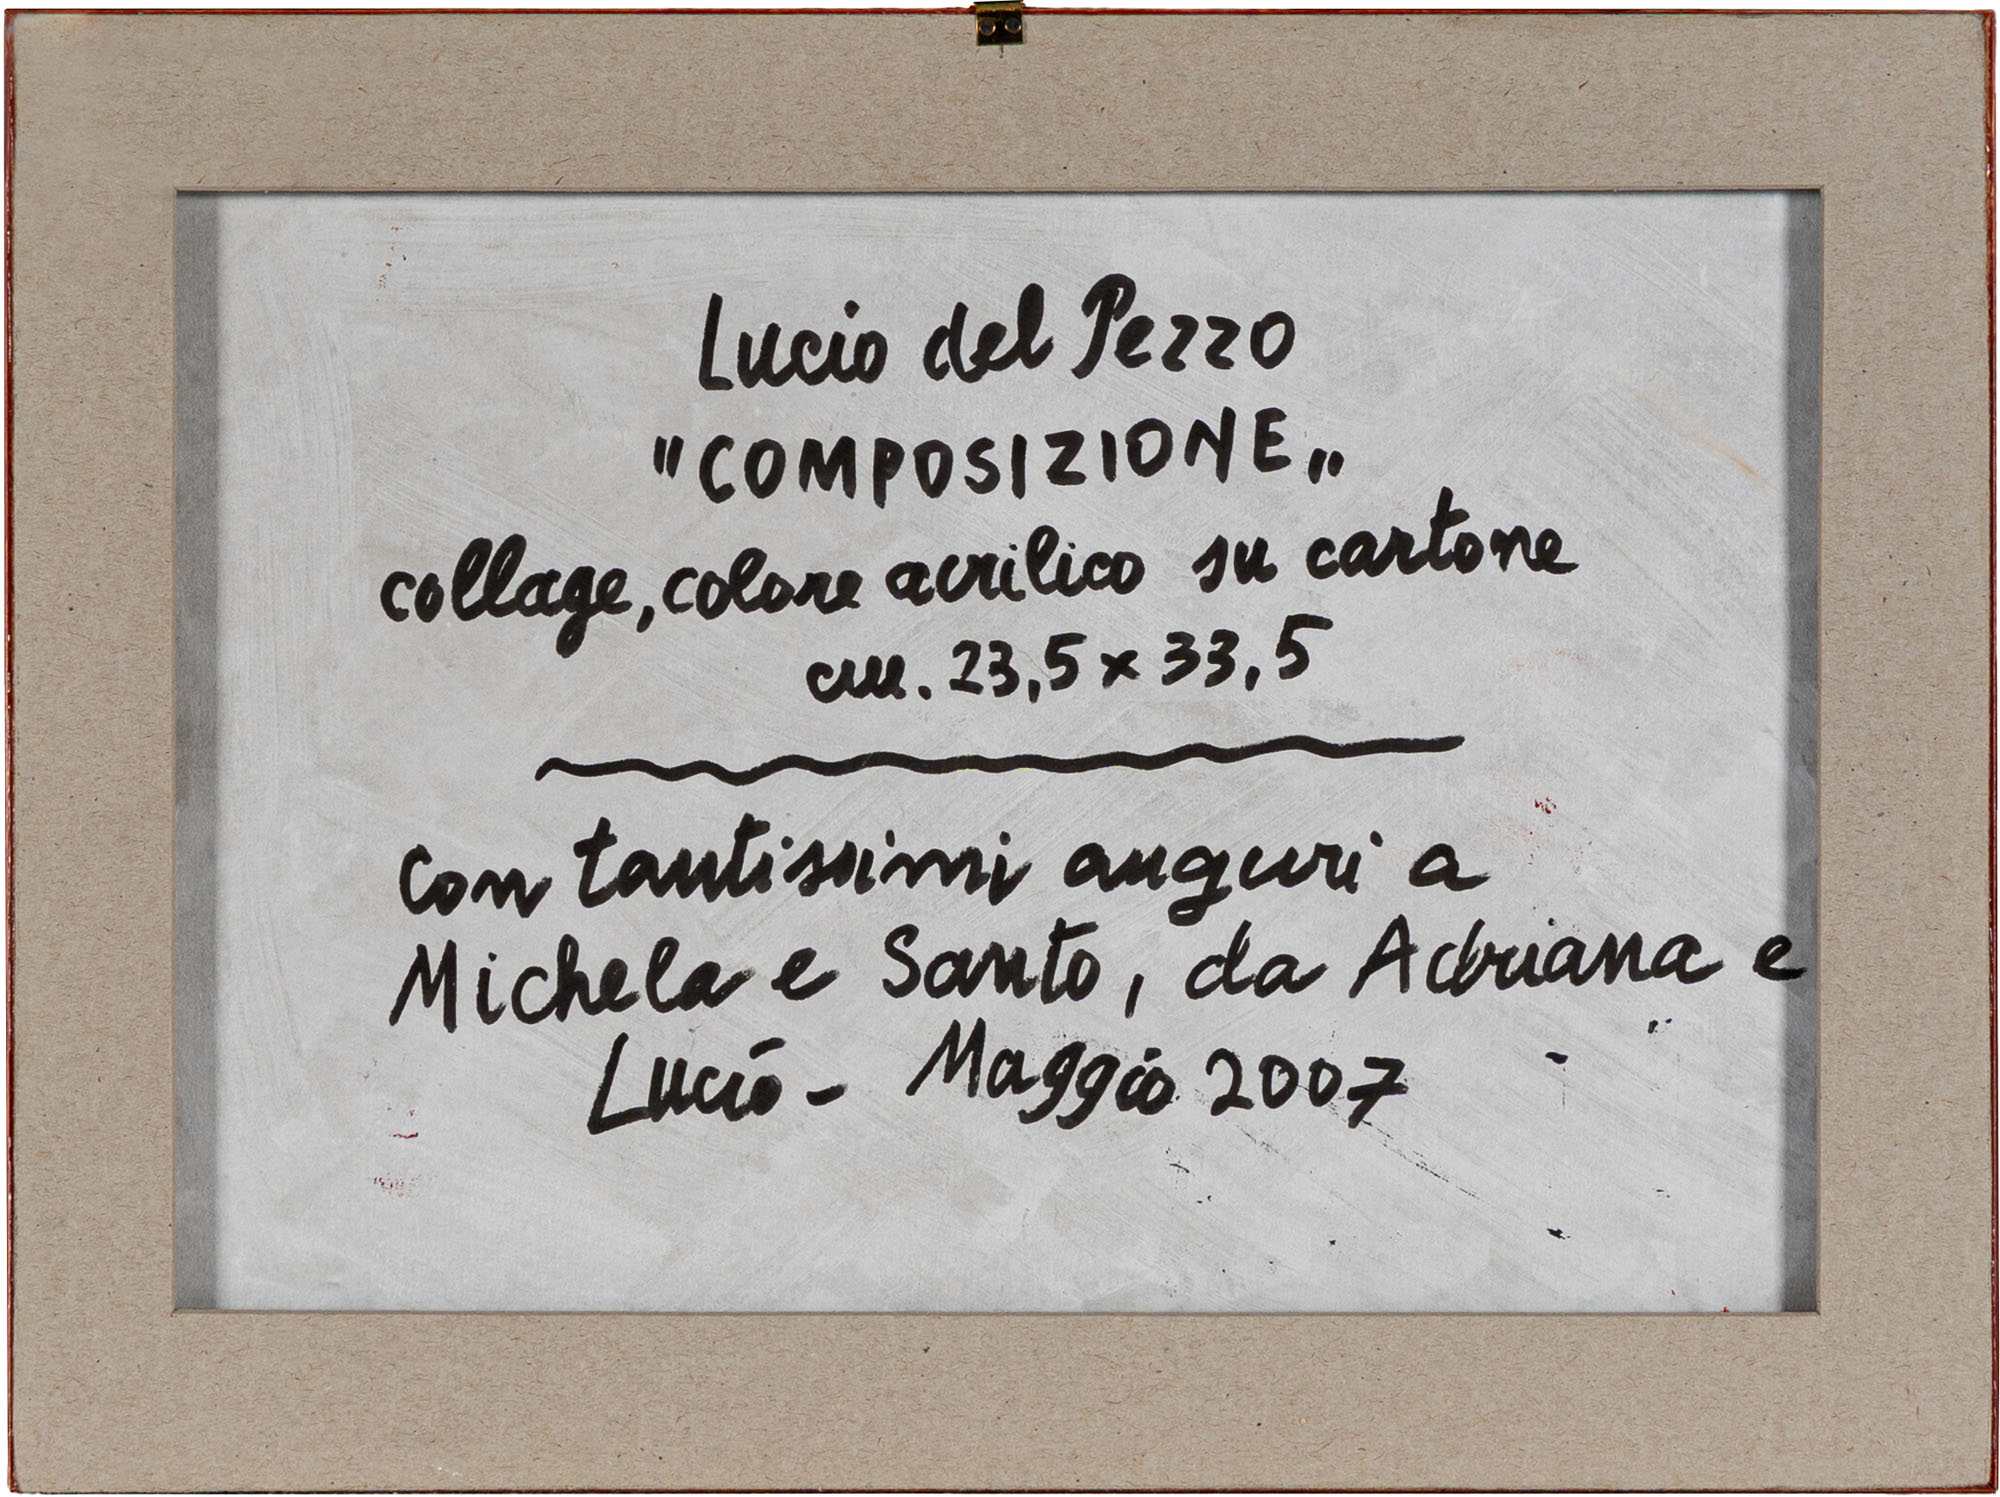 Lucio del Pezzo
"COMPOSIZIONE„
collage, colore acrilico su cartone
cm. 23,5 x 33,5
Con tantissimi auguri a
Michela e Santo, da Adriana e
Lucio - Maggio 2007